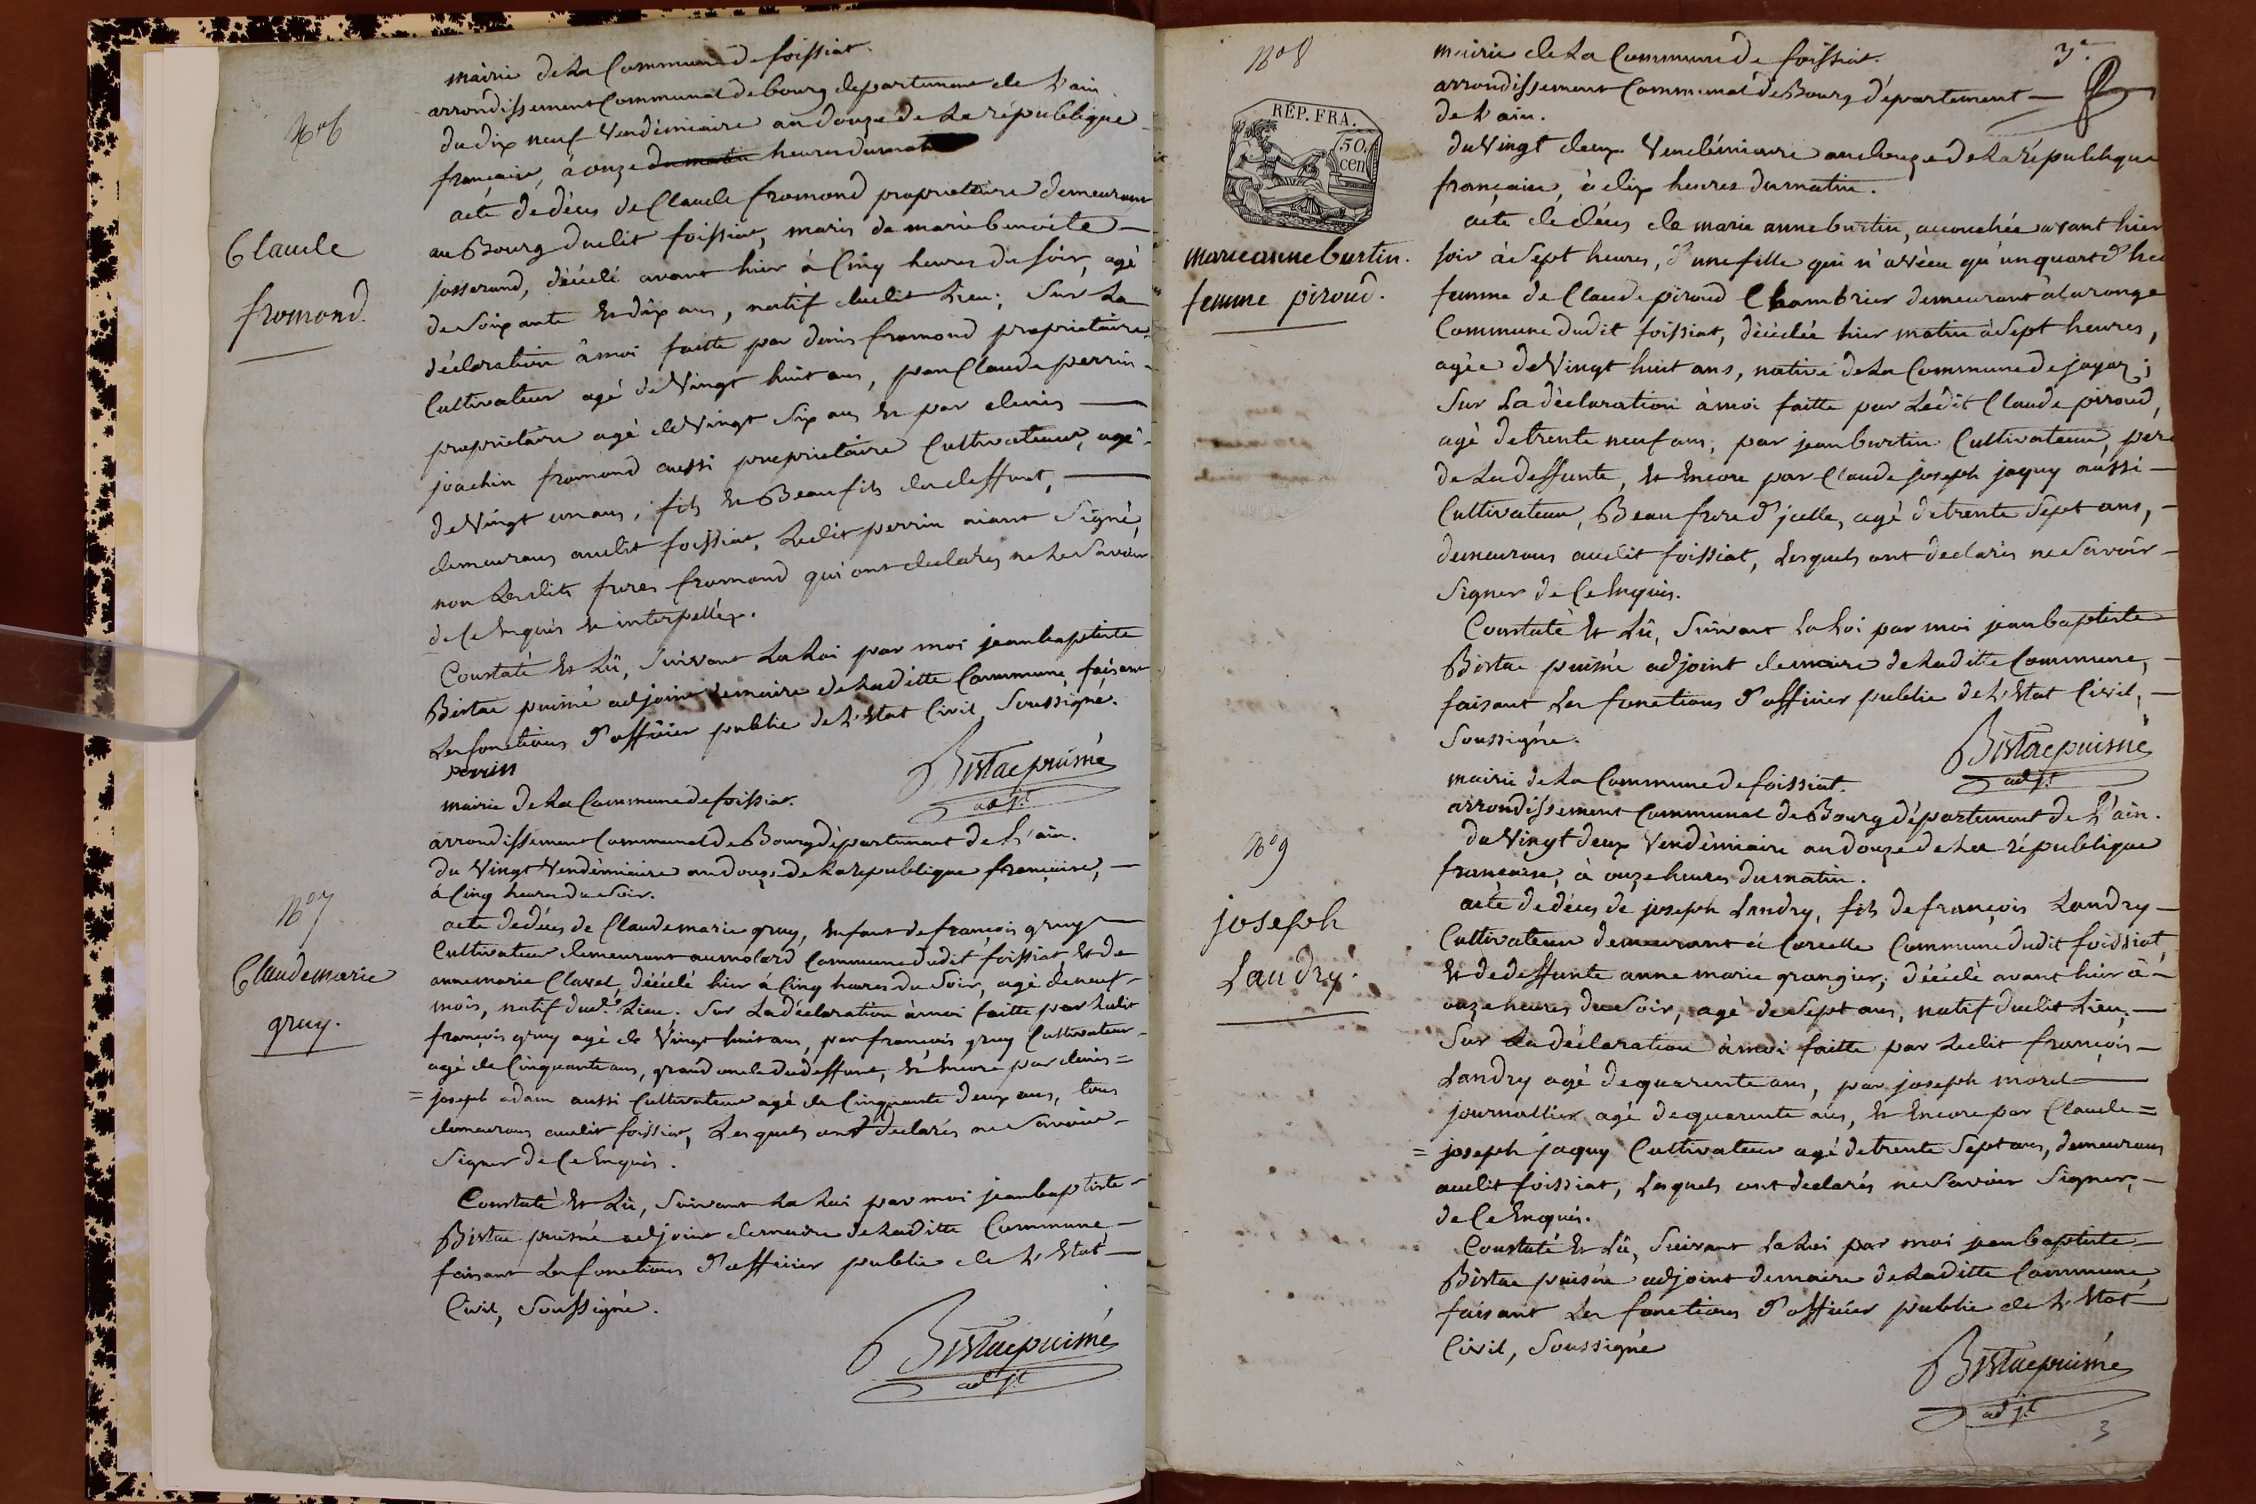 mairie de la Commune de foissiat.
arrondissement Communal de bourg departement de l'ain.
N° 6
du dix neuf Vendémiaire an douze de la république
française, à onze du matin heures du matin
acte de décès de Claude fromond propriétaire demeurant
Claude
fromond.
au Bourg dudit foissiat, maris de marie benoite
josserand, décédé avant hier à Cinq heures du soir, agé
de soixante et dix ans, natif dudit Lieu; sur La
déclaration à moi faitte par denis fromond propriétaire
Cultivateur agé de Vingt huit ans, par Claude perrin
propriétaire agé de Vingt six ans et par denis
joachin fromond aussi propriétaire Cultivateur, agé
de Vingt un ans, fils et Beaufils du deffunt,
demeurans audit foissiat, Ledit perrin aiant signé,
non Lesdits freres fromond qui ont declarés ne Le Savoir
de Ce Enquis et interpellés.
Constaté Et Lû, suivant La Loi par moi jean baptiste
Bistac puisné adjoint de maire de Laditte Commune, faisant
Les fonctions d'officier public de L'Etat Civil soussigné.
perrin
Bistac puisné
adjt
mairie de La Commune de foissiat.
arrondissement Communal de Bourg département de L'ain.
du Vingt Vendémiaire an douze de La république française,
à Cinq heures du Soir.
N° 7
Claude marie
gruy.
acte de décès de Claude marie gruy, Enfant de françois gruy
Cultivateur demeurant au molard Commune dudit foissiat, Et de
anne marie Clavel, décédé hier à Cinq heures du Soir, agé de neuf
mois, natif dud.t Lieu. Sur La déclaration à moi faitte par Ledit
françois gruy agé de Vingt huit ans, par françois gruy Cultivateur
agé de Cinquante ans, grand oncle du deffunt, Et Encore par denis =
= joseph adam aussi Cultivateur agé de Cinquante deux ans, tous
demeurans audit foissiat, Lesquels ont declarés ne Savoir
Signer de Ce Enquis.
Constaté Et Lû, Suivant La Loi par moi jean baptiste
Bistac puisné adjoint de maire de Laditte Commune
faisant Les fonctions d'officier public de L'Etat
Civil, Soussigné.
Bistac puisné
adjt
3e
N° 8
mairie de La Commune de foissiat.
arrondissement Communal de Bourg département
de L'ain.
RÉP. FRA.
50
cen
du Vingt deux Vendémiaire an douze de La république
française, à dix heures du matin.
marie anne burtin.
femme piroud.
acte de décès de marie anne burtin, accouchée avant hier
soir à Sept heures, d'une fille qui n'a vécu qu'un quart d'heu
femme de Claude piroud Chambrier demeurant à Laronge
Commune dudit foissiat, décédée hier matin à Sept heures,
agée de Vingt huit ans, native de La Commune de jayaz;
Sur La déclaration à moi faitte par Ledit Claude piroud,
agé de trente neuf ans, par jean burtin Cultivateur, pere
de La deffunte, Et Encore par Claude joseph jaquy aussi
Cultivateur, Beau frere d'jcelle, agé de trente Sept ans,
demeurans audit foissiat, Lesquels ont declarés ne Savoir
Signer de Ce Enquis.
Constaté Et Lû, Suivant La Loi par moi jean baptiste
Bistac puisné adjoint de maire de Laditte Commune,
faisant Les fonctions d'officier public de L'Etat Civil,
Soussigné.
Bistac puisné
adjt
mairie de La Commune de foissiat.
arrondissement Communal de Bourg département de L'ain.
N° 9
joseph
Landry.
du Vingt deux Vendémiaire an douze de La république
française, à onze heures du matin.
acte de décès de joseph Landry, fils de françois Landry
Cultivateur demeurant à Corcelle Commune dudit foissiat,
Et de deffunte anne marie grangier; décédé avant hier à
onze heures du Soir, agé de Sept ans, natif dudit Lieu,
Sur La déclaration à moi faitte par Ledit françois
Landry agé de quarente ans, par joseph morel
journallier agé de quarente ans, Et Encore par Claude =
= joseph jaquy Cultivateur agé de trente Sept ans, demeurans
audit foissiat, Lesquels ont declarés ne Savoir Signer,
de Ce Enquis.
Constaté Et Lû, Suivant La Loi par moi jean baptiste
Bistac puisné adjoint de maire de Laditte Commune,
faisant Les fonctions d'officier public de L'Etat
Civil, Soussigné
Bistac puisné
adjt
3